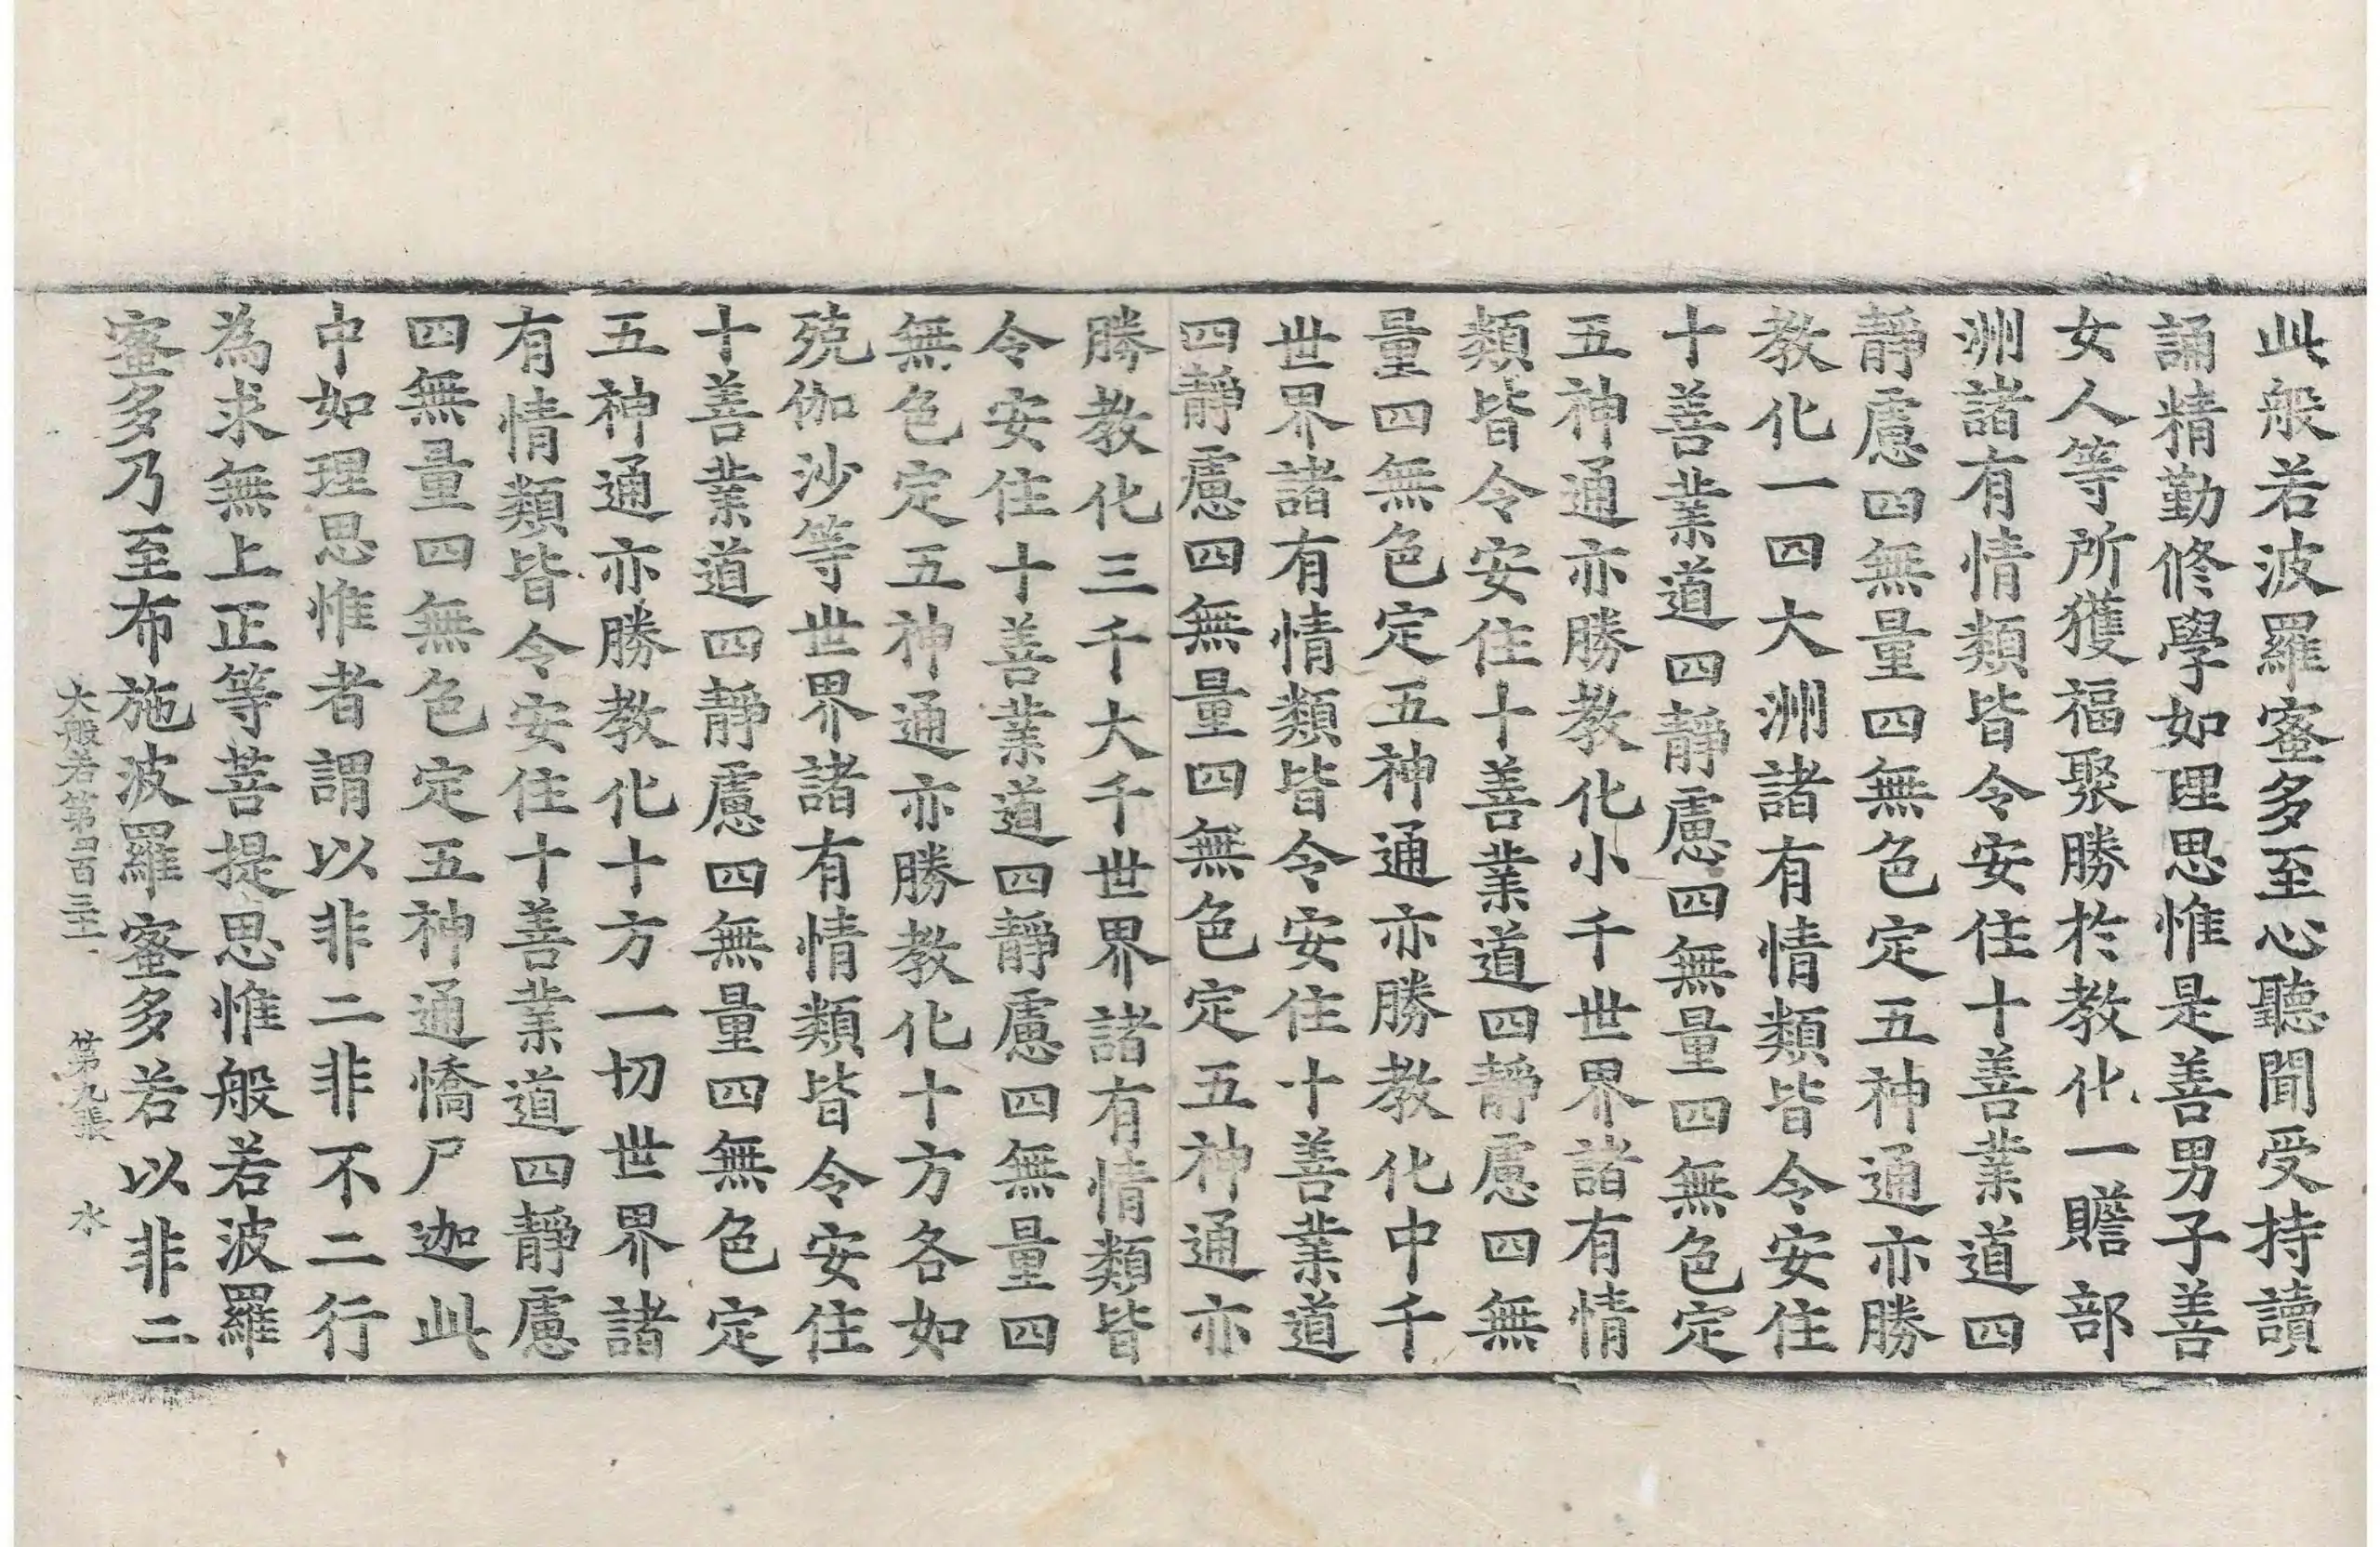 此般若波羅蜜多至心聽聞受持讀
誦精勤修學如理思惟是善男子善
女人等所獲福聚勝於教化一贍部
洲諸有情類皆令安住十善業道四
靜慮四無量四無色定五神通亦勝
教化一四大洲諸有情類皆令安住
十善業道四靜慮四無量四無色定
五神通亦勝教化小千世界諸有情
類皆令安住十善業道四靜慮四無
量四無色定五神通亦勝教化中千
世界諸有情類皆令安住十善業道
四靜慮四無量四無色定五神通亦
勝教化三千大千世界諸有情類皆
令安住十善業道四靜慮四無量四
無色定五神通亦勝教化十方各如
殑伽沙等世界諸有情類皆令安住
十善業道四靜慮四無量四無色定
五神通亦勝教化十方一切世界諸
有情類皆令安住十善業道四靜慮
四無量四無色定五神通憍尸迦此
中如理思惟者謂以非二非不二行
為求無上正等菩提思惟般若波羅
蜜多乃至布施波羅蜜多若以非二
大般若第四百三十 第九張 水